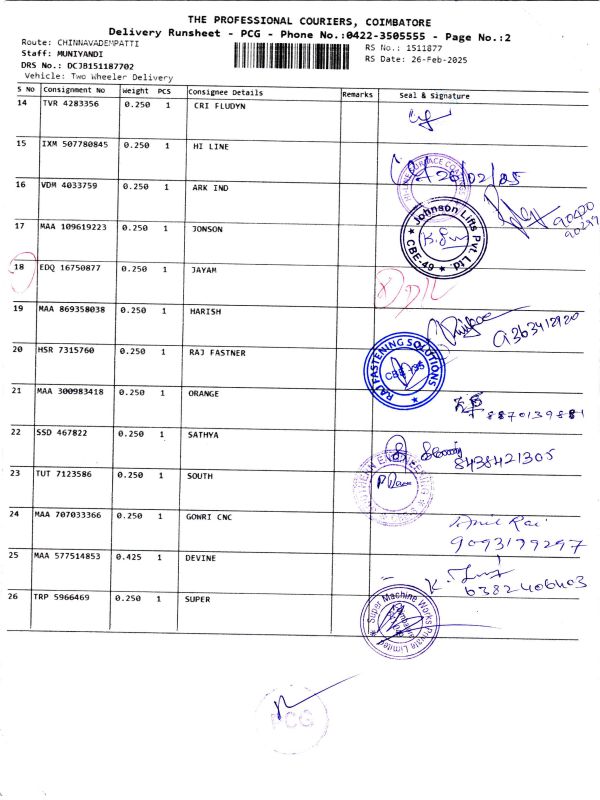 THE PROFESSIONAL COURIERS, COIMBATORE
Delivery Runsheet - PCG - Phone No.:0422-3505555 - Page No.:2
Route: CHINNAVADEMPATTI
RS No.: 1511877
Staff: MUNIYANDI
RS Date: 26-Feb-2025
DRS No.: DCJB151187702
Vehicle: Two Wheeler Delivery
S No Consignment No Weight PCS Consignee Details Remarks Seal & Signature
14 TVR 4283356 0.250 1 CRI FLUDYN
15 IXM 507780845 0.250 1 HI LINE
26/02/25
16 VDM 4033759 0.250 1 ARK IND
17 MAA 109619223 0.250 1 JONSON
Johnson Lifts Pvt Ltd
CBE-49
18 EDQ 16750877 0.250 1 JAYAM
19 MAA 869358038 0.250 1 HARISH
20 HSR 7315760 0.250 1 RAJ FASTNER
RAJ FASTENING SOLUTIONS
21 MAA 300983418 0.250 1 ORANGE
8870139881
22 SSD 467822 0.250 1 SATHYA
8438421305
23 TUT 7123586 0.250 1 SOUTH
24 MAA 707033366 0.250 1 GOWRI CNC
9093199297
25 MAA 577514853 0.425 1 DEVINE
6382406403
26 TRP 5966469 0.250 1 SUPER
Super Machine Works Private Limited
PCG